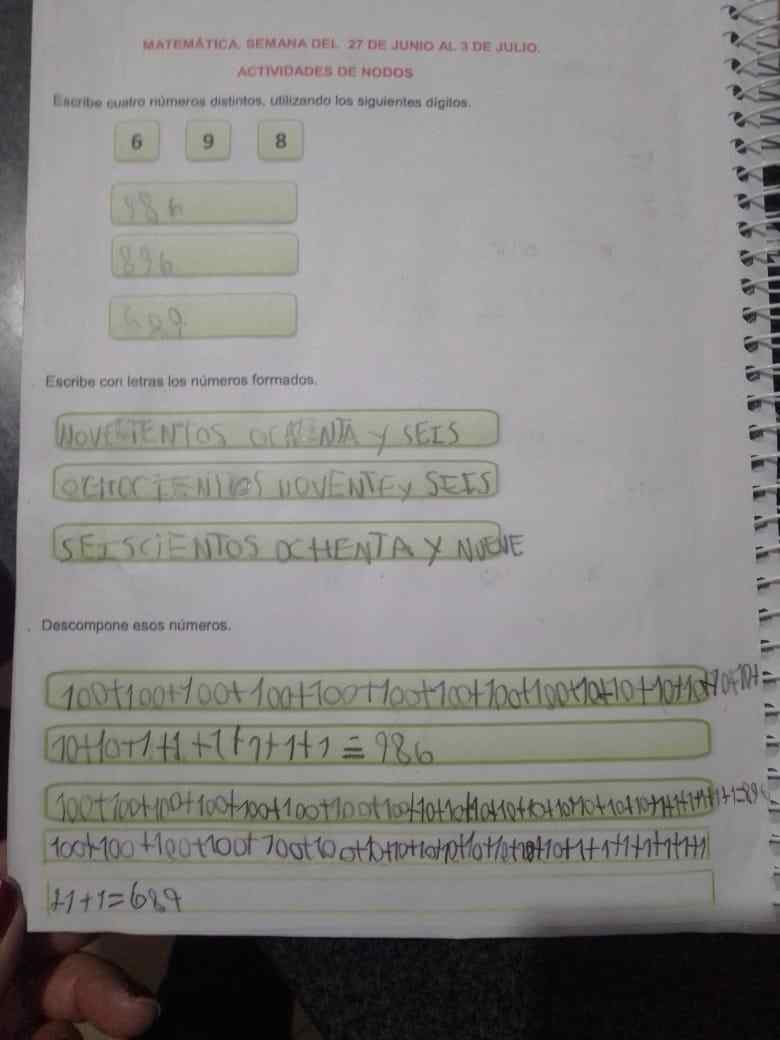 MATEMÁTICA. SEMANA DEL 27 DE JUNIO AL 3 DE JULIO.
ACTIVIDADES DE NODOS
Escribe cuatro números distintos, utilizando los siguientes dígitos.
6 9 8
986
896
689
Escribe con letras los números formados.
NOVECIENTOS OCHENTA Y SEIS
OCHOCIENTOS NOVENTE Y SEIS
SEISCIENTOS OCHENTA Y NUEVE
Descompone esos números.
100+100+100+100+100+100+100+100+100+10+10+10+10+10+10+
10+10+1+1+1+1+1+1=986
100+100+100+100+100+100+100+100+10+10+10+10+10+10+10+10+10+1+1+1+1+1+1=896
100+100+100+100+100+100+10+10+10+10+10+10+10+10+1+1+1+1+1+1+1
+1+1=689